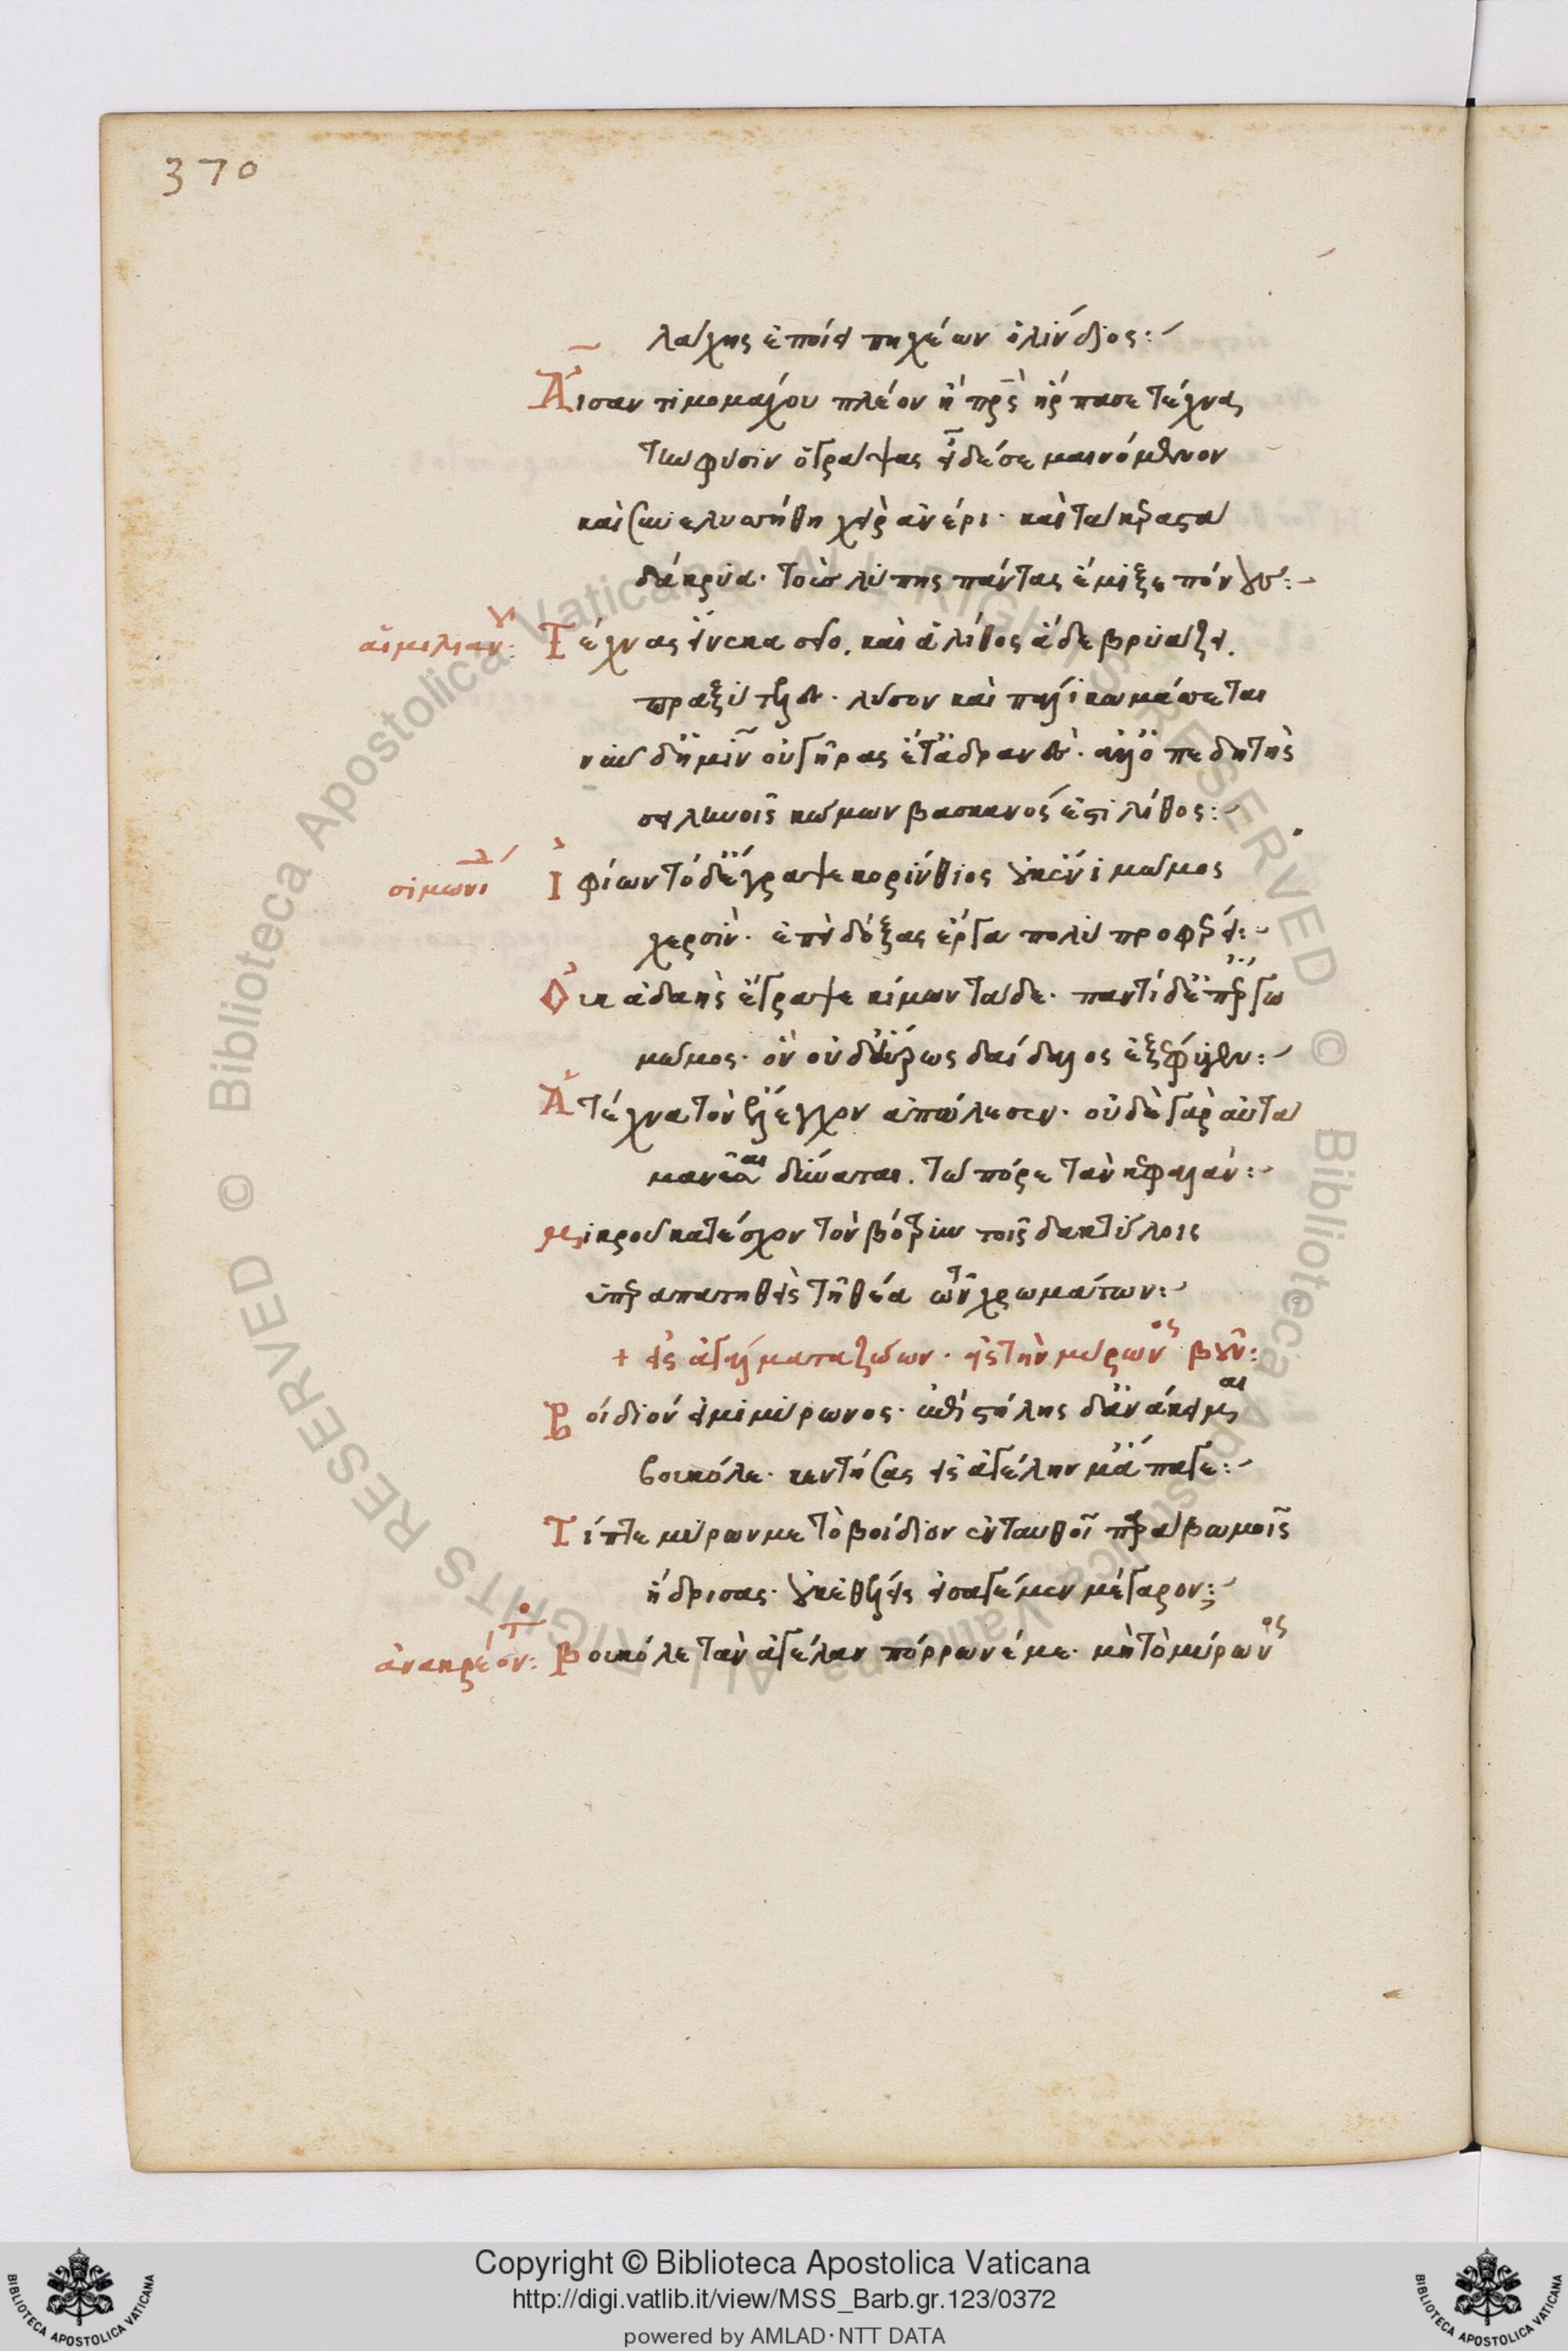 370
λάχης ἐποίει πηχέων ὁ λίνδιος:
Αἴσαν τιμομάχου πλέον ἢ πρὸς ἥρπασε τέχνας
τὴν φύσιν ὁ γράψας εἶδέ σε μαινόμενον
καὶ συνελυπήθη χεὶρ ἀνέρι· καὶ τὰ κέραστὰ
δάκρυα· τοὺς λύπης πάντας ἔμιξε πόνους:
αἰμιλιανοῦ: Τέχνας εἵνεκα σεῖο, καὶ ἁ λίθος ἅδε βρυάζει.
πραξίτελες· λῦσον καὶ πάλι κωμάσεται
νῦν δ' ἡμῖν οὐ γῆρας ἔτ' ἀδρανές· ἀλλ' ὁ πεδητὴς
σειληνοῖς κώμων βάσκανός ἐστι λίθος:
σιμωνί Ἰφίων τόδ' ἔγραψε κορίνθιος οὐκ ἔνι μῶμος
χερσὶν· ἐπεὶ δόξας ἔργα πολὺ προφέρει:
Οὐκ ἀδαὴς ἔγραψε κίμων τάδε· παντὶ δ' ἐπ' ἔργω
μῶμος· ὃν οὐδ' ἥρως δαίδαλος ἐξέφυγεν:
Ἁ τέχνα τὸν ἔλεγχον ἀπώλεσεν· οὐδὲ γὰρ αὐτὰ
μανῦσαι δύναται. τῷ πόρε τὰν κεφαλάν:
μικροῦ κατέσχον τὸν βότρυν τοῖς δακτύλοις
ὑπεραπατηθεὶς τῇ θέᾳ τῶν χρωμάτων:
+ εἰς ἀγάλματα ζώων· εἰς τὴν μύρωνος βοῦν:
Βοίδιόν εἰμι μύρωνος· ἐπὶ στήλης δ' ἀνάκειμαι
βουκόλε· κεντήσας εἰς ἀγέλην μ' ἄπαγε:
Τίπτε μύρων με τὸ βοίδιον ἐνταυθοῖ παρὰ βωμοῖς
ἵδρυσας· οὐκ ἐθέλεις εἰσαγέμεν μέγαρον:
ἀνακρέοντος: Βουκόλε τὰν ἀγέλαν πόρρω νέμε· μὴ τὸ μύρωνος
Copyright © Biblioteca Apostolica Vaticana
http://digi.vatlib.it/view/MSS_Barb.gr.123/0372
powered by AMLAD·NTT DATA